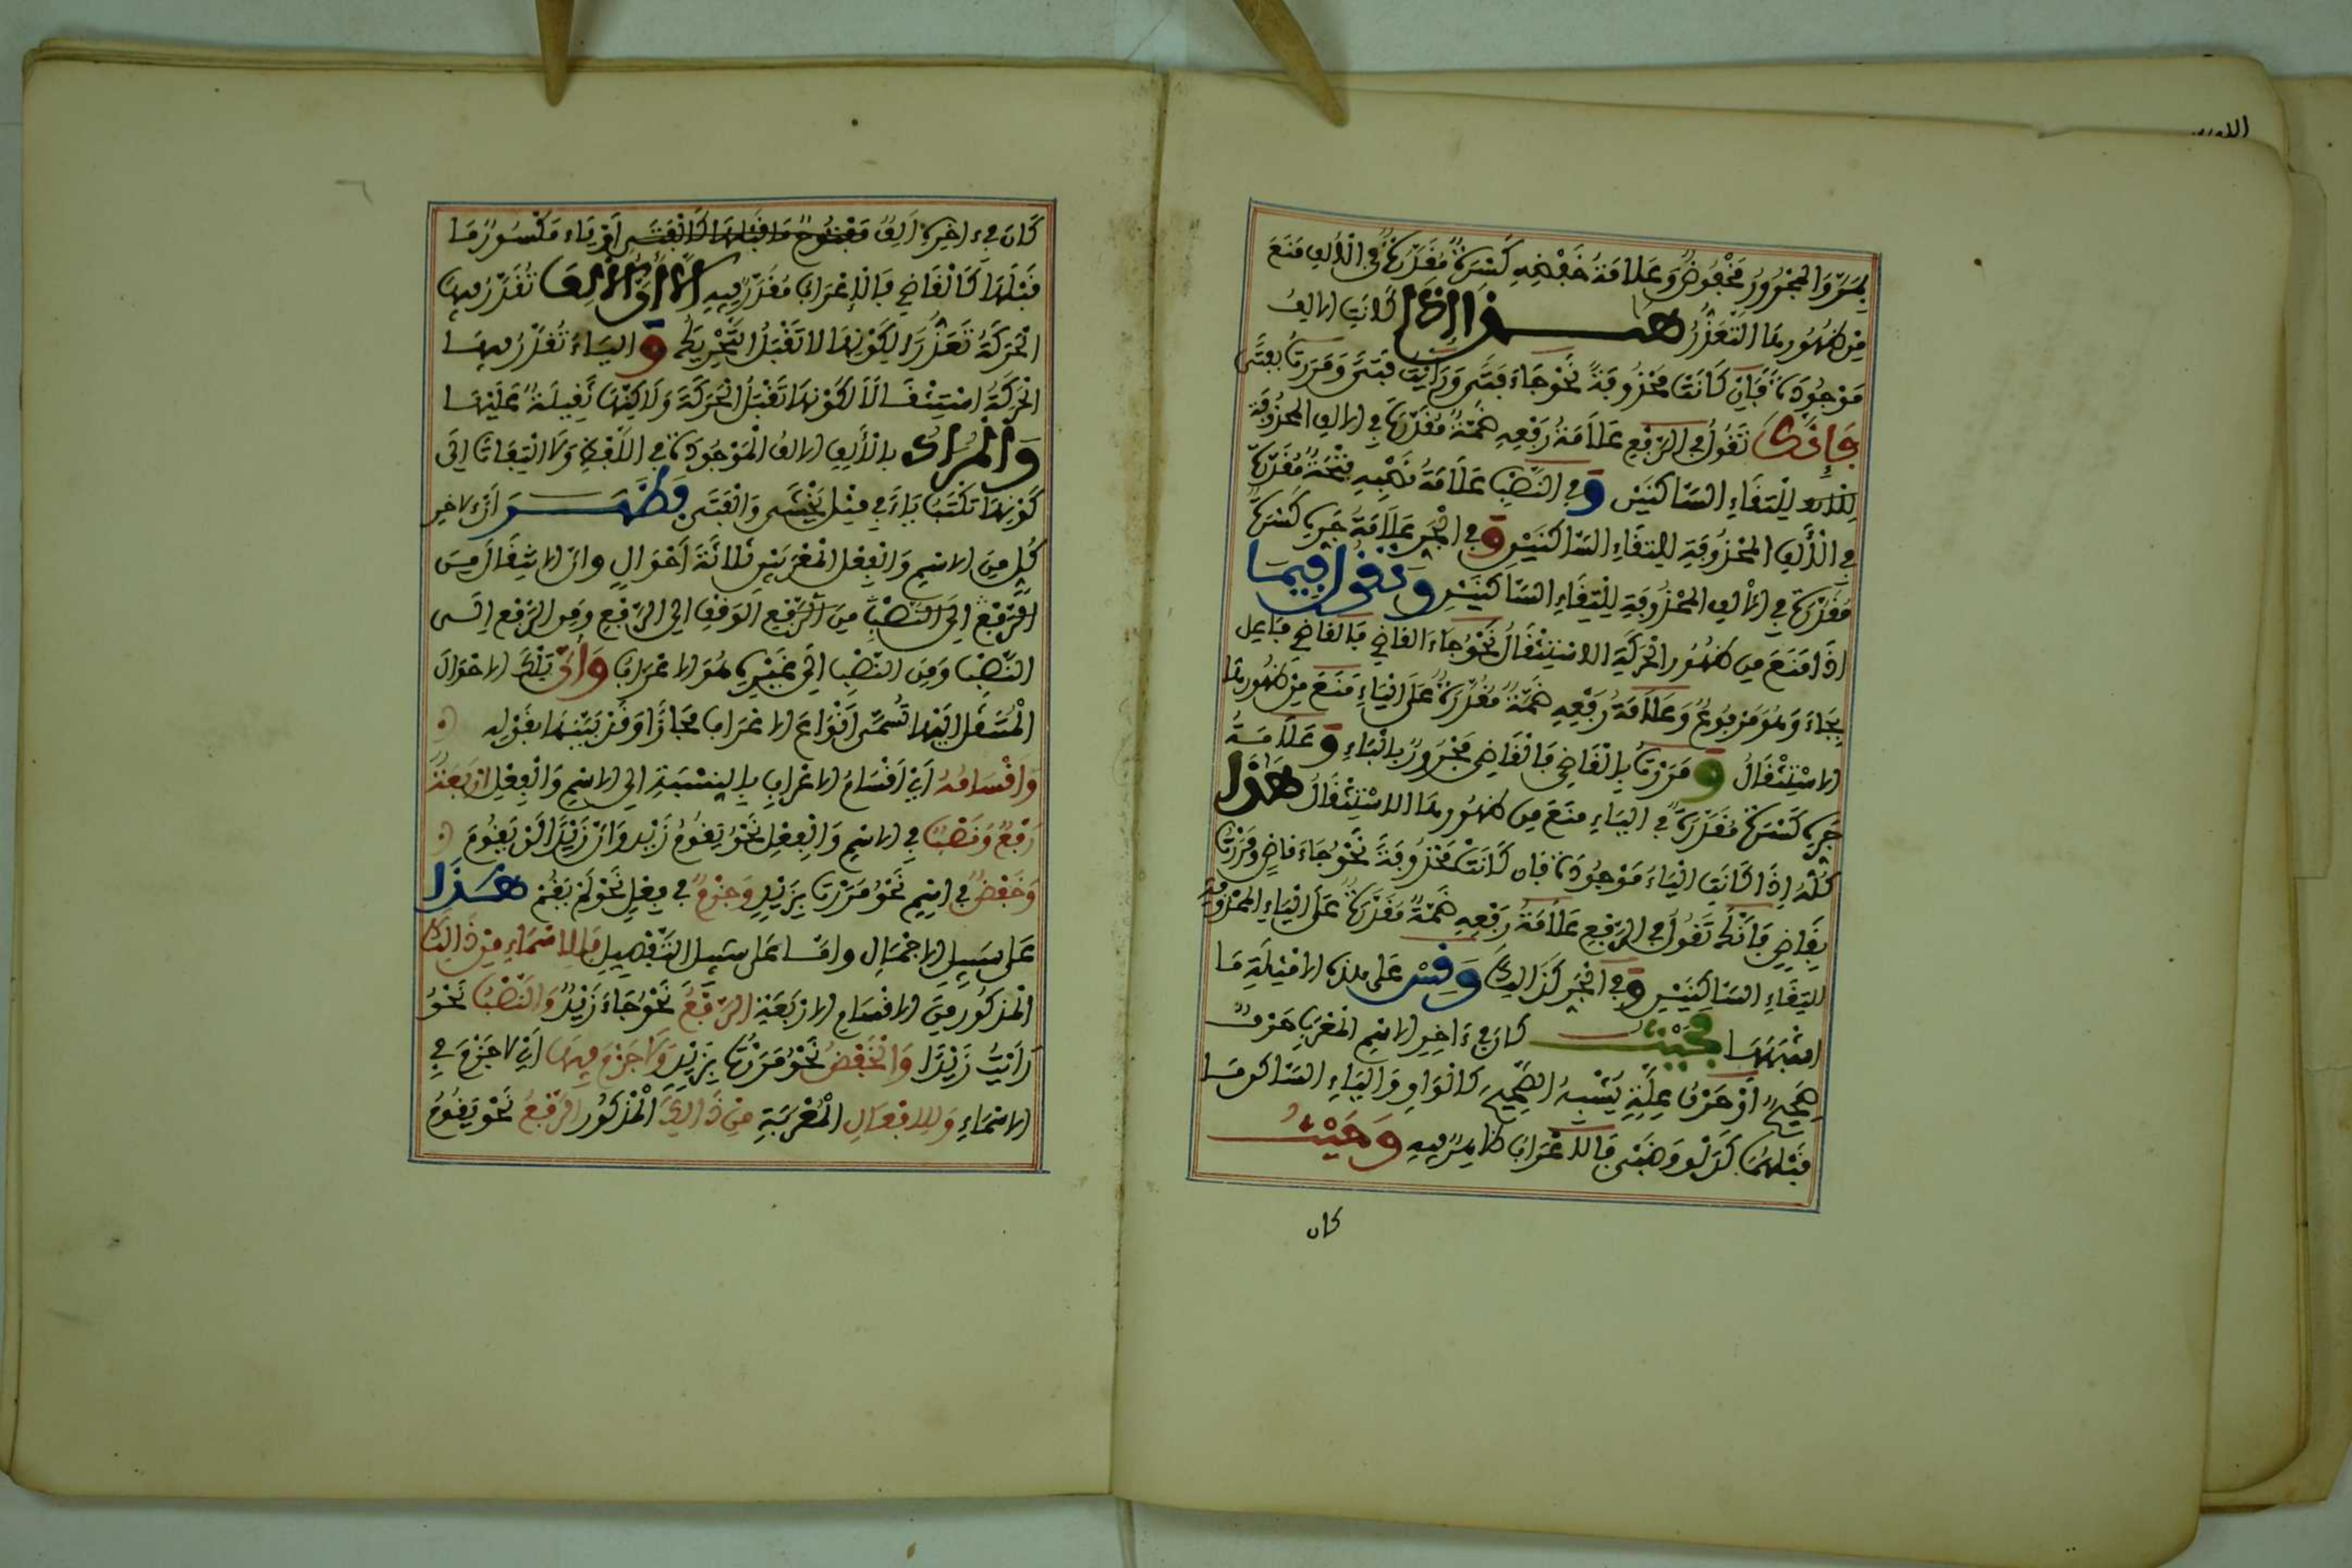 بمن والمجرور مخفوض وعلامة خفضه كسرة مقدرة في الألف منع
من ظهورها التعذر هذا إذا كانت الالف
موجودة فإن كانت محذوفة نحو جاء فتى ورأيت فتى ومررت بفتى
فإنك تقول في الرفع علامة رفعه ضمة مقدرة في الالف المحذوفة
لالتقاء الساكنين وفي النصب علامة نصبه فتحة مقدرة
في الألف المحذوفة لالتقاء الساكنين وفي الجر علامة جره كسرة
مقدرة في الألف المحذوفة لالتقاء الساكنين وتقول فيما
اذا منع من ظهور الحركة الاستثقال نحو جاء القاضي فالقاضي فاعل
بجاء وهو مرفوع وعلامة رفعه ضمة مقدرة على الياء منع من ظهورها
الاستثقال ومررت بالقاضي فالقاضي مجرور بالباء وعلامة
جره كسرة مقدرة في الياء منع من ظهورها الاستثقال هذا
كله إذا كانت الياء موجودة فان كانت محذوفة نحو جاء قاض ومررت
بقاض فانك تقول في الرفع علامة رفعه ضمة مقدرة على الياء المحذوفة
لالتقاء الساكنين وفي الجر كذالك وقس على هذه الامثلة ما
اشبهها فحيث كان في ءاخر الاسم المعرب حرف
صحيح أو حرف علة يشبه الصحيح كالواو والياء الساكن ما
قبلهما كدلو وظبي فالاعراب ظاهر فيه وحيث
كان
كان في ءاخره ألف مفتوح ما قبلها كالفتى أو ياء مكسور ما
قبلها كالقاضي فالإعراب مقدر فيه إلا أن الألف تقدر فيها
الحركة تعذرا لكونها لا تقبل التحريك والياء تقدر فيها
الحركة استثقالا لكونها تقبل الحركة ولاكنها ثقيلة عليها
والمراد بالألف الالف الموجودة في اللفظ ولا التفات الى
كونها تكتب ياء في مثل يخشى والفتى فظهر أن لاخر
كل من الاسم والفعل المعربين ثلاثة أحوال وان الانتقال من
الوقف الى الرفع ومن الرفع الى
النصب ومن النصب الى غيره هو الاعراب وأن تلك الاحوال
المنتقل إليها تسمى انواع الاعراب مجازا وقد بينها بقوله
وأقسامه أي أقسام الاعراب بالنسبة الى الاسم والفعل اربعة
رفع ونصب في الاسم والفعل نحو يقوم زيد وان زيدا لن يقوم
وخفض في اسم نحو مررت بزيد وجزم في فعل نحو لم يقم هذا
على سبيل الاجمال واما على سبيل التفصيل فللاسماء من ذالك
المذكور من الاقسام الاربعة الرفع نحو جاء زيد والنصب نحو
رأيت زيدا والخفض نحو مررت بزيد ولا جزم فيها أي لا جزم في
الاسماء وللافعال المعربة من ذالك المذكور الرفع نحو يقوم